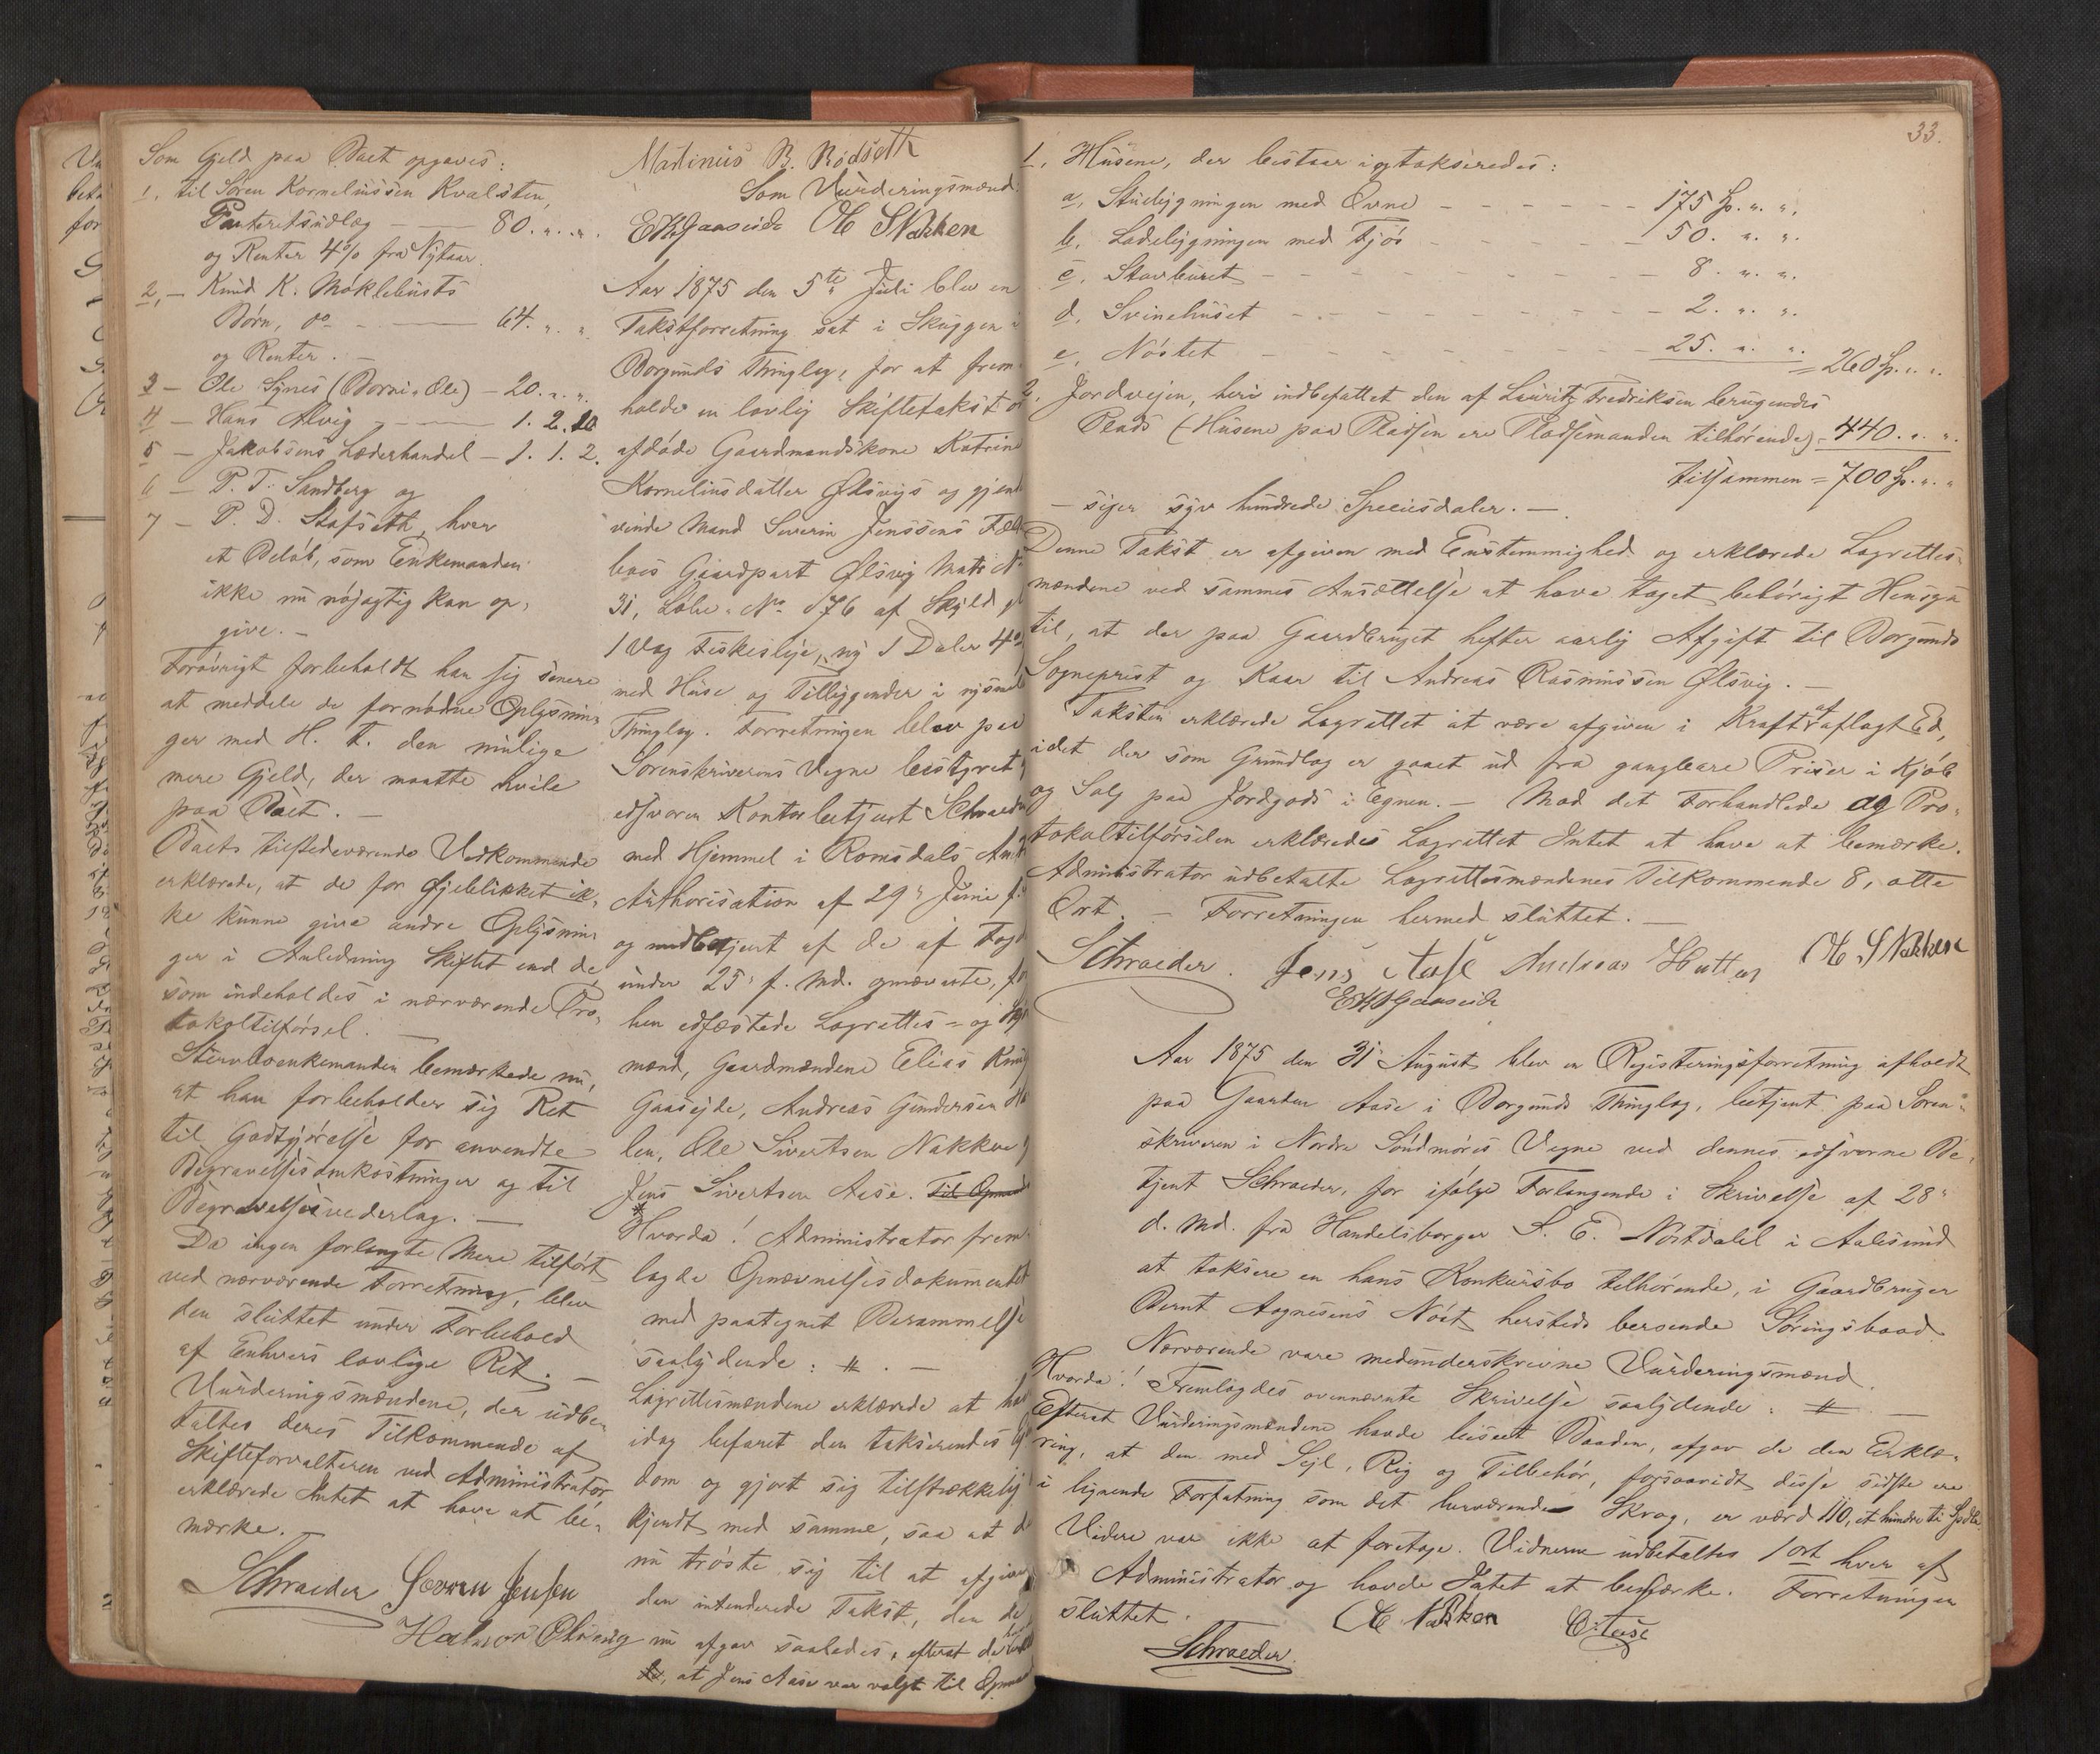 Som Gjeld paa Boet opgaves:
1, til Søren Korneliussen Kvalsten,
Panteretsudlæg — 80. " "
og Renter 4% fra Nytaar.
2, — Knud K. Møklebusts
Børn, do — 64. " "
og Renter. —
3 — Ole Synes (Borni-Ole) — 20. " "
4 — Hans Alvig — 1. 2. 10
5 — Jakobsens Læderhandel — 1. 1. 2.
6 — P. T. Sandberg og
7 — P. D. Stafseth, hver
et Beløb, som Enkemanden
ikke nu nøjagtig kan op-
give. —
Forøvrigt forbeholdt han sig senere
at meddele de fornødne Oplysnin-
ger med H. t. den mulige
mere Gjeld, der maatte hvile
paa Boet. —
Boets tilstedeværende Vedkommende
erklærede, at de for Øjeblikket ik-
ke kunne give andre Oplysnin-
ger i Anledning Skiftet end de,
som indeholdes i nærværende Pro-
tokoltilførsel. —
Stervboenkemanden bemærkede nu,
at han forbeholder sig Ret
til Godtgjørelse for anvendte
Begravelsesomkostninger og til
Begravelsesvederlag. —
Da ingen forlangte mere tilført
ved nærværende Forretning, blev
den sluttet under Forbehold
af Enhvers lovlige Ret. —
Vurderingsmændene, der udbe-
taltes deres Tilkommende af
Skifteforvalteren ved Administrator
erklærede Intet at have at be-
mærke.
Schraeder Severin Jensen
Martinus B. Rødseth
Som Vurderingsmænd:
EKGaaseide OL SNakken
Aar 1875 den 5te Juli blev en
Takstforretning sat i Skuggen i
Borgunds Thinglag, for at frem-
holde en lovlig Skiftetakst o
afdøde Gaardmandskone Katrine
Korneliusdatter Ølsvigs og gjen
vinde Mand Severin Jenssens Fæl
boes Gaardpart Ølsvig Matr N
31, Løbe-No 176 af Skyld gl
1 Vog Fiskesleje, ny 1 Daler 4
med Huse og Tilliggender i nysnæ
Thinglag. Forretningen blev paa
Sorenskriverens Vegne bestyret
edsvoren Kontorbetjent Schraed
med Hjemmel i Romsdals Amt
Authorisation af 29" Juni f.
og medbetjent af de af Fogd
under 25" f. Md. opnævnte, fo
hen edfæstede Lagrettes- og
mænd, Gaardmændene Elias Knu
Gaasejde, Andreas Gundersen H
len, Ole Sivertsen Nakken
Jens Sivertsen Aase. Til Opmand
Hvorda! Administrator frem-
lagde Opnævnelsesdokumentet
med paategnet Berammelse
saalydende: # . —
Lagrettesmændene erklærede at ha
idag befaret den takserendes Ej
dom og gjort sig tilstrækkelig
kjendt med samme, saa at d
nu trøste sig til at afgive
den intenderede Takst, den de
nu afgav saaledes, efterat de
at Jens Aase var valgt til Opma
33.
1, Husene, der bestaar i og takseredes:
a, Stuebygningen med Ovne — 175 Sp. " "
b, Ladebygningen med Fjøs — 50. " "
c, Stavburet — 8. " "
d, Svinehuset — 2. " "
e, Nøstet — 25. " " = 260 Sp. " "
2, Jordvejen, heri indbefattet den af Lauritz Fredriksen brugendes
Plads (Husene paa Pladsen ere Pladsemanden tilhørende) = 440. " "
tilsammen = 700 Sp. " "
— siger syv hundrede Speciesdaler. —
Denne Takst er afgiven med Enstemmighed og erklærede Lagrettes-
mændene ved sammes Ansættelse at have taget behørigt Hensyn
til, at der paa Gaardbruget hefter aarlig Afgift til Borgunds
Sogneprest og Kaar til Andreas Rasmussen Ølsvig. —
Taksten erklærede Lagrettet at være afgiven i Kraft af aflagt Ed,
idet der som Grundlag er gaaet ud fra gangbare Priser i Kjøb
og Salg paa Jordgods i Egnen. — Mod det Forhandlede og Pro-
tokoltilførselen erklæredes Lagrettet Intet at have at bemærke.
Administrator udbetalte Lagrettesmændenes Tilkommende 8, otte
Ort. — Forretningen hermed sluttet. —
Schraeder. Jens Aase Andreas OL SNakken
EKGaaseide
Aar 1875 den 31 August blev en Registeringsforretning afholdt
paa Gaarden Aase i Borgunds Thinglag, betjent paa Soren-
skriveren i Nordre Søndmøres Vegne ved dennes edsvorne Be-
tjent Schraeder, for ifølge Forlangende i Skrivelse af 28"
d. Md. fra Handelsborger S. E. Nostdahl i Aalesund
at taksere en hans Konkursbo tilhørende, i Gaardbruger
Bernt Aagnesens Nøst hersteds beroende Søringsbaad
Nærværende vare medunderskrevne Vurderingsmænd.
Hvorda! Fremlagdes ovennævnte Skrivelse saalydende: # —
Efterat Vurderingsmændene havde beseet Baaden, afgav de den Erklæ-
ring, at den med Sejl, Rig og Tilbehør, forsaavidt disse sidste ere
i lignende Forfatning som det herværende Skrog, er værd 110, et hundre ti Spdlr.
Videre var ikke at foretage. Vidnerne udbetaltes 1 ort hver af
Administrator og havde Intet at bemærke. Forretningen
sluttet.
OL Nakken
Schraeder.